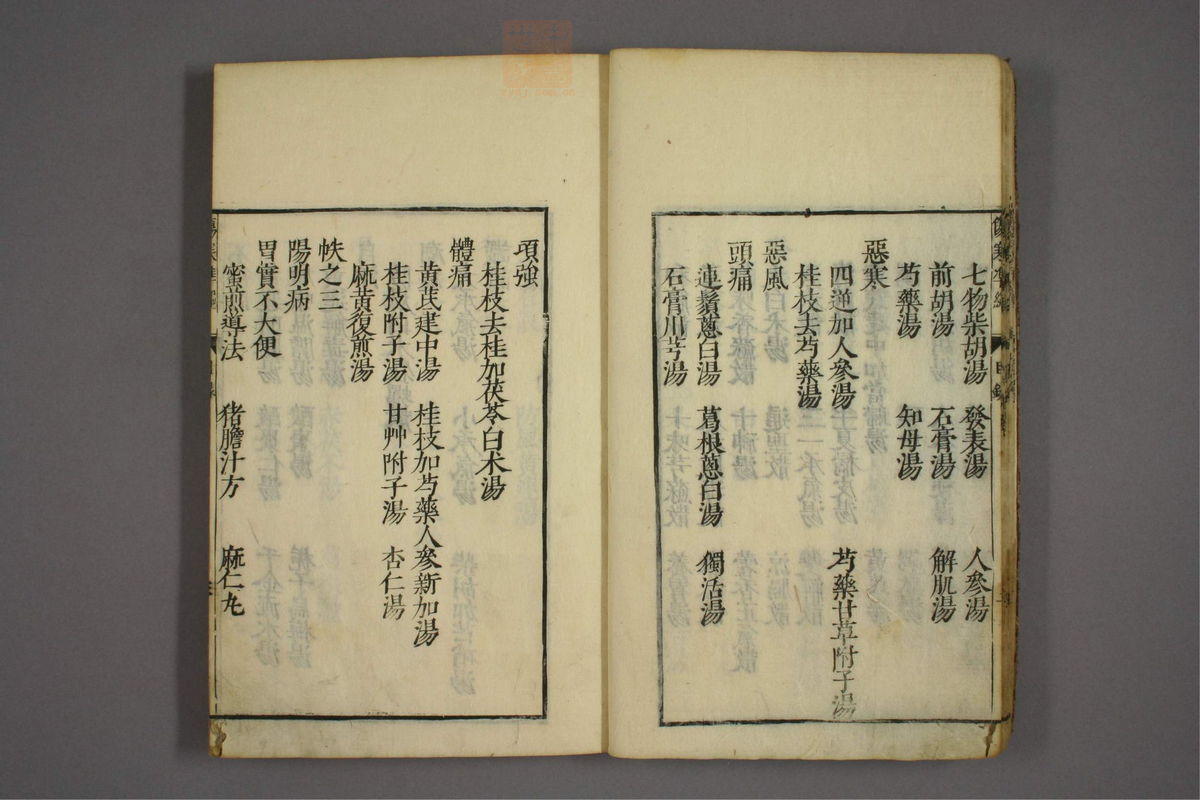 七物柴胡湯　發表湯　人參湯
前胡湯　石膏湯　解肌湯
芍藥湯　知母湯
惡寒
四逆加人參湯　芍藥甘草附子湯
桂枝去芍藥湯
惡風
頭痛
連鬚蔥白湯　葛根蔥白湯　獨活湯
石膏川芎湯
項強
桂枝去桂加茯苓白朮湯
體痛
黃芪建中湯　桂枝加芍藥人參新加湯
桂枝附子湯　甘艸附子湯　杏仁湯
麻黃復煎湯
帙之三
陽明病
胃實不大便
蜜煎導法　猪膽汁方　麻仁丸